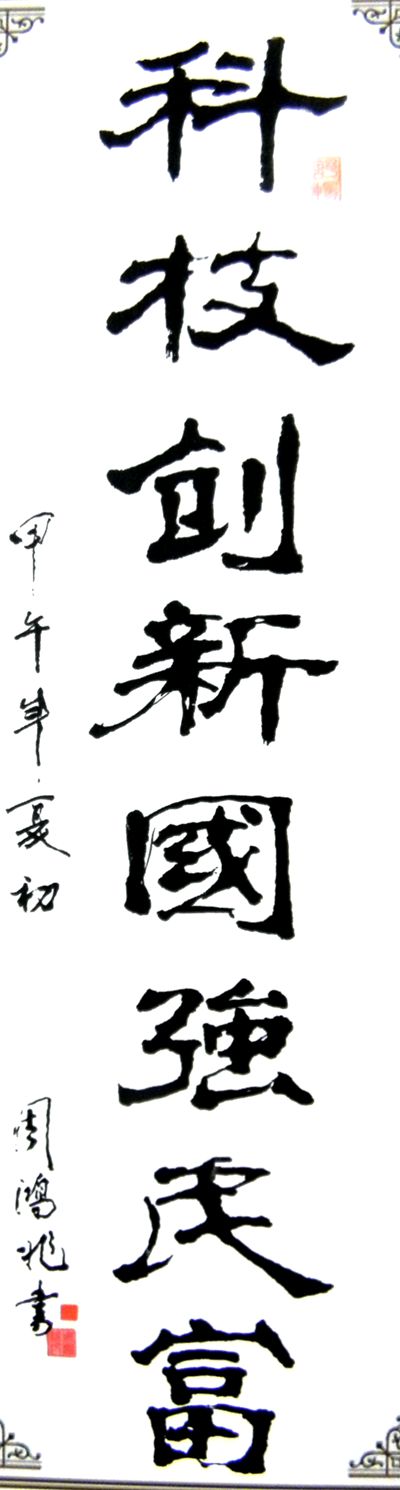 科技創新國強民富
甲午年夏初
周鴻兆書